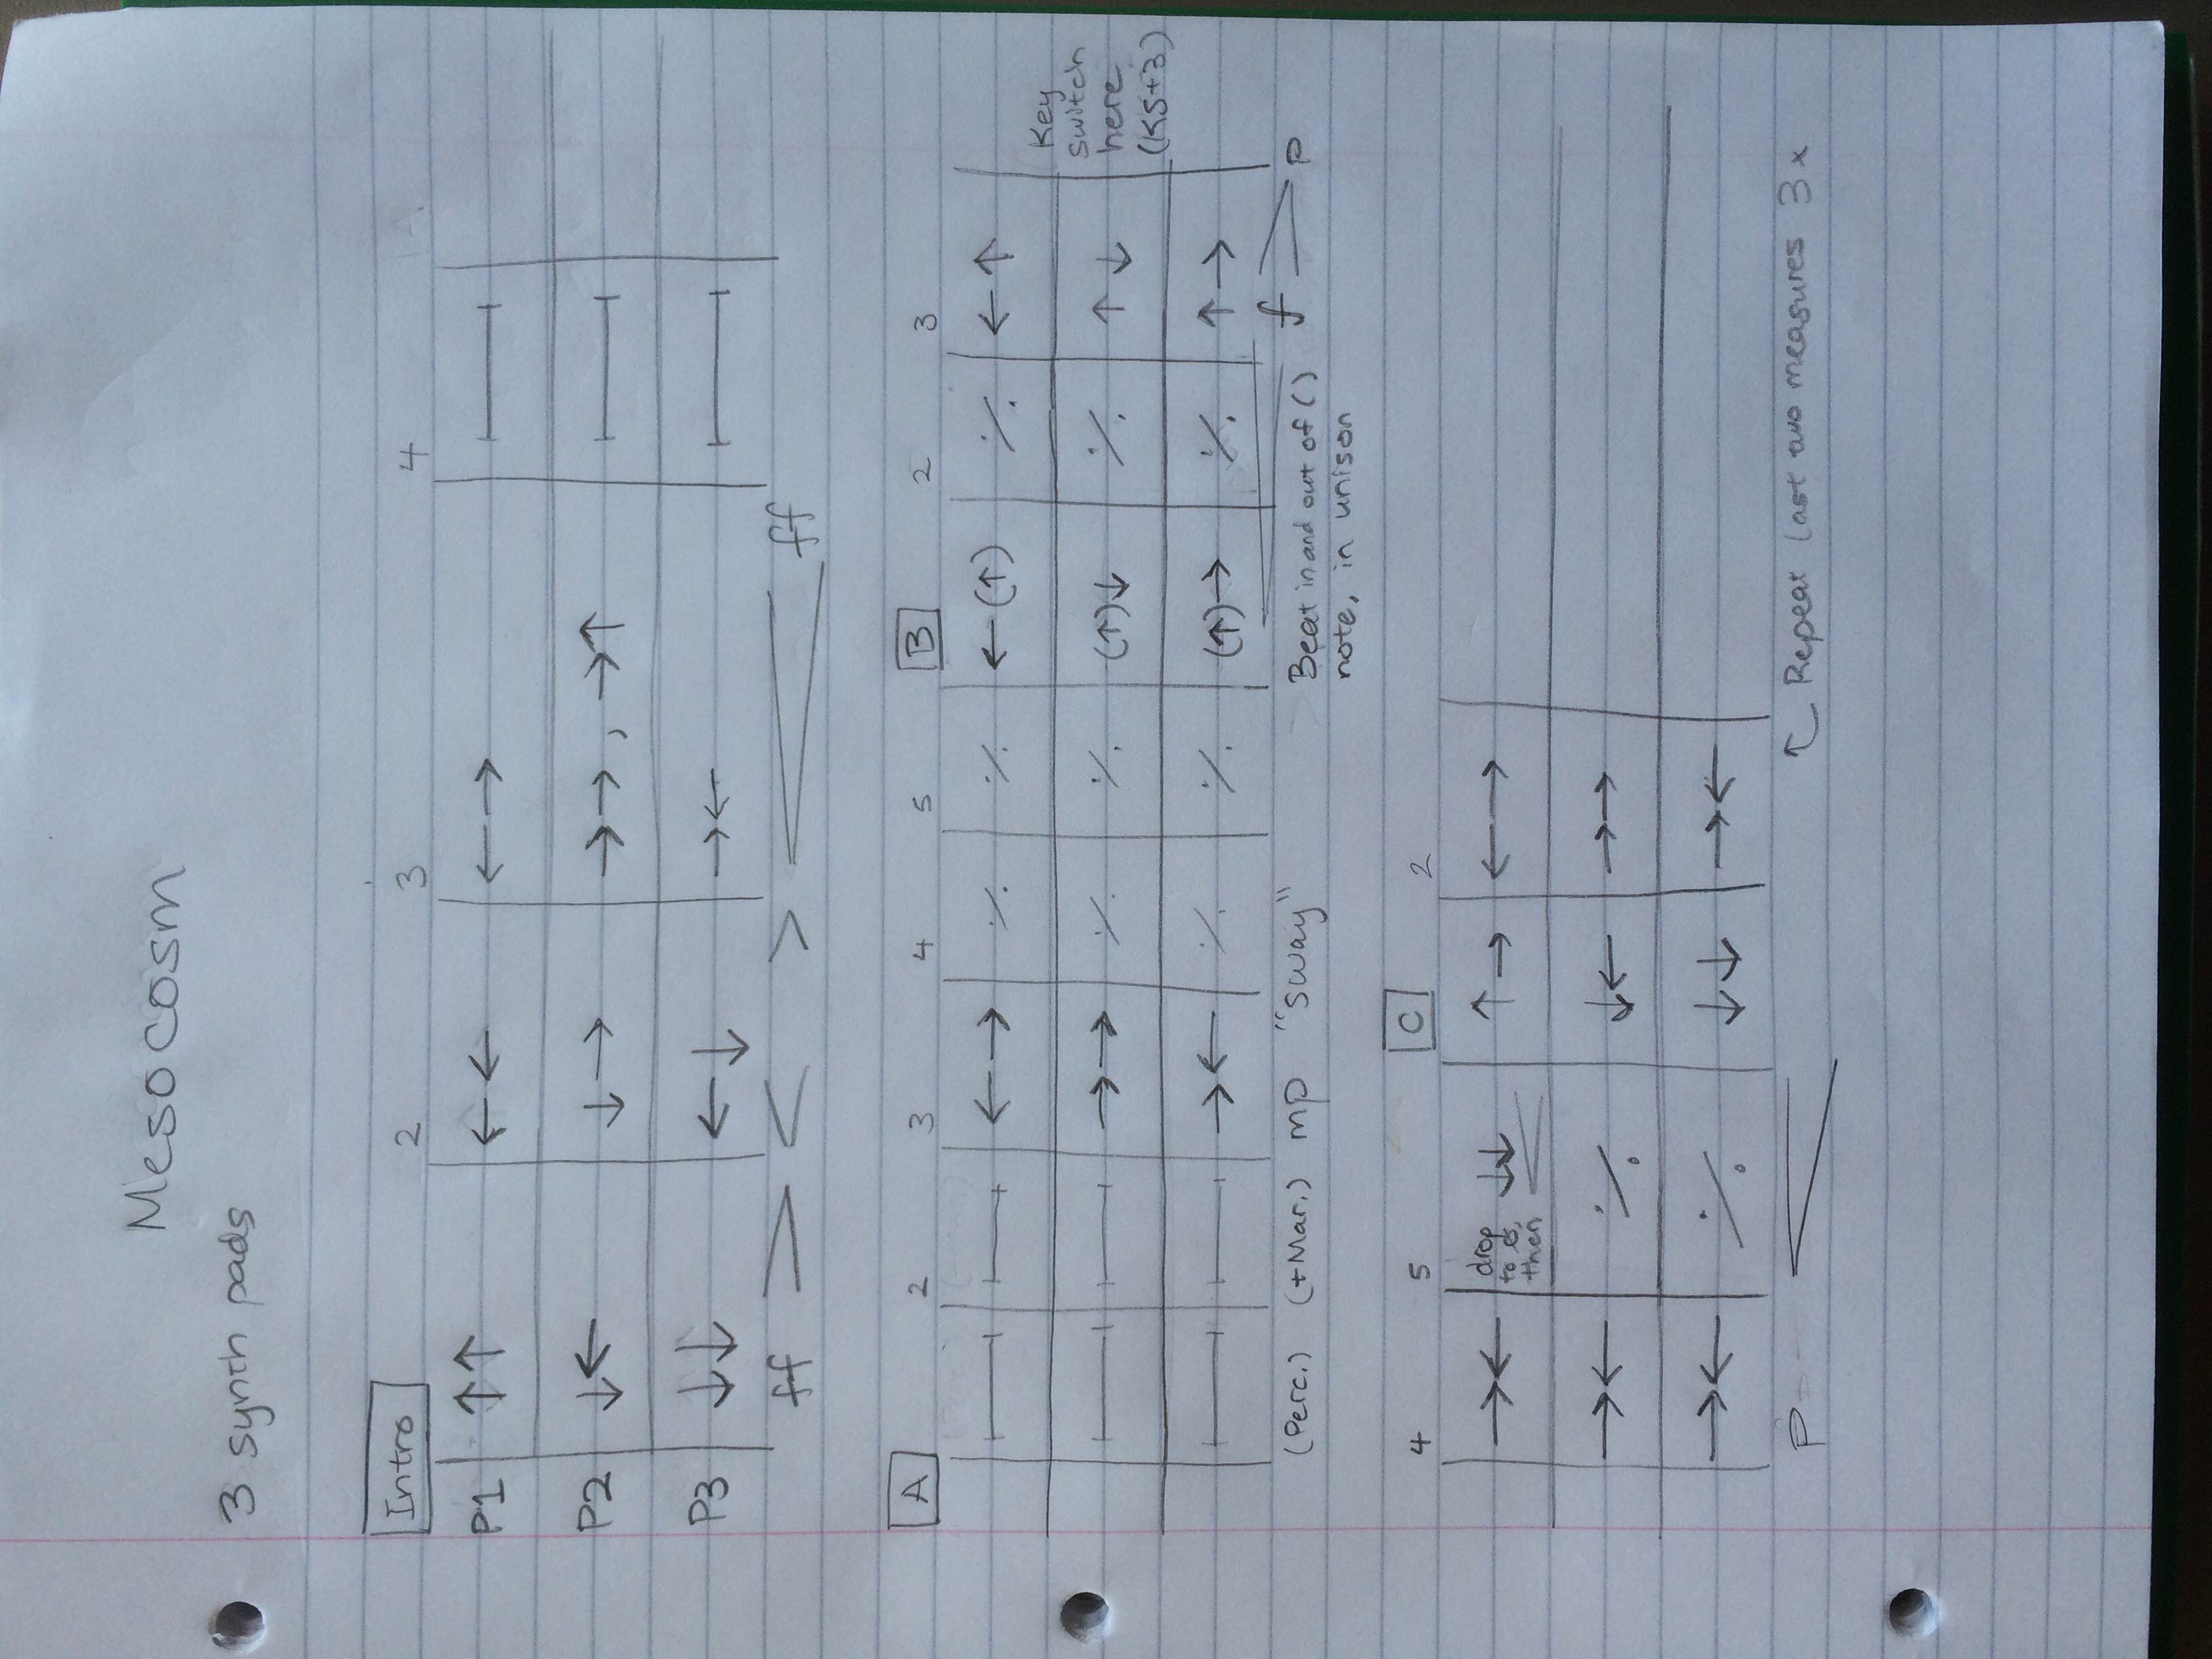 Mesocosm
3 synth pads
Intro 2 3 4
P1 ↑↑ ←← ←→
P2 ↓← ↓→ →→, →↑
P3 ↓↓ ←↓ →←
ff > < > < ff
A 2 3 4 5 B 2 3
←→ ٪ ٪ ←(↑) ٪ ←↑
→→ ٪ ٪ (↑)↓ ٪ ↑↓
→← ٪ ٪ (↑)→ ٪ ↑→
Key
switch
here
(KS+3)
(Perc.) (+Mar.) mp "sway" < f > p
Beat in and out of ( )
note, in unison
4 5 C 2
→← drop ↓↓ ↑→ ←→
to
then <
→← ٪ ↓← →→
→← ٪ ↓↓ →←
p <
Repeat last two measures 3x